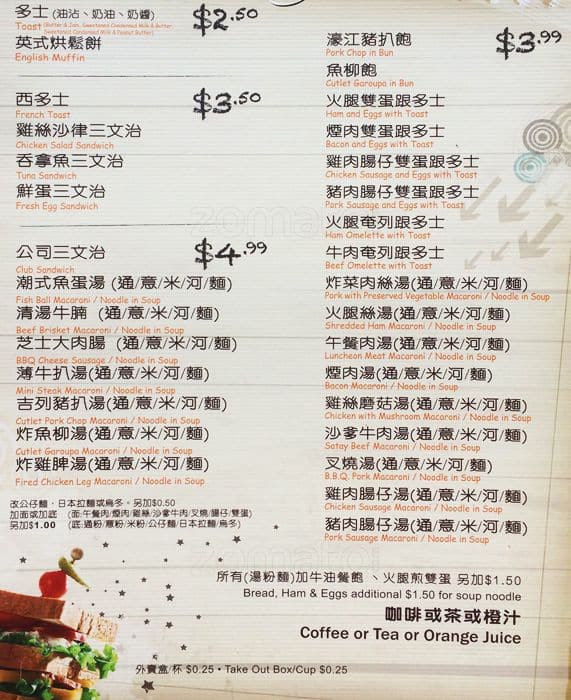 多士 (油沾、奶油、奶醬) $2.50
Toast (Butter & Jam, Sweetened Condensed Milk & Butter,
Sweetened Condensed Milk & Peanut Butter)
英式烘鬆餅
English Muffin
西多士 $3.50
French Toast
雞絲沙律三文治
Chicken Salad Sandwich
吞拿魚三文治
Tuna Sandwich
鮮蛋三文治
Fresh Egg Sandwich
公司三文治 $4.99
Club Sandwich
潮式魚蛋湯 (通/薏/米/河/麵)
Fish Ball Macaroni / Noodle in Soup
清湯牛腩 (通/薏/米/河/麵)
Beef Brisket Macaroni / Noodle in Soup
芝士大肉腸 (通/薏/米/河/麵)
BBQ Cheese Sausage / Noodle in Soup
薄牛扒湯(通/薏/米/河/麵)
Mini Steak Macaroni / Noodle in Soup
吉列豬扒湯(通/薏/米/河/麵)
Cutlet Pork Chop Macaroni / Noodle in Soup
炸魚柳湯(通/薏/米/河/麵)
Cutlet Garoupa Macaroni / Noodle in Soup
炸雞脾湯(通/薏/米/河/麵)
Fired Chicken Leg Macaroni / Noodle in Soup
改公仔麵、日本拉麵或烏冬。另加$0.50
加面或加底 (面:午餐肉/煙肉/雞絲/沙爹牛肉/叉燒/腸仔/雙蛋)
另加$1.00 (底:通粉/薏粉/米粉/公仔麵/日本拉麵/烏冬)
濠江豬扒飽 $3.99
Pork Chop in Bun
魚柳飽
Cutlet Garoupa in Bun
火腿雙蛋跟多士
Ham and Eggs with Toast
煙肉雙蛋跟多士
Bacon and Eggs with Toast
雞肉腸仔雙蛋跟多士
Chicken Sausage and Eggs with Toast
豬肉腸仔雙蛋跟多士
Pork Sausage and Eggs with Toast
火腿奄列跟多士
Ham Omelette with Toast
牛肉奄列跟多士
Beef Omelette with Toast
炸菜肉絲湯(通/薏/米/河/麵)
Pork with Preserved Vegetable Macaroni / Noodle in Soup
火腿絲湯(通/薏/米/河/麵)
Shredded Ham Macaroni / Noodle in Soup
午餐肉湯(通/薏/米/河/麵)
Luncheon Meat Macaroni / Noodle in Soup
煙肉湯(通/薏/米/河/麵)
Bacon Macaroni / Noodle in Soup
雞絲磨菇湯(通/薏/米/河/麵)
Chicken with Mushroom Macaroni / Noodle in Soup
沙爹牛肉湯(通/薏/米/河/麵)
Satay Beef Macaroni / Noodle in Soup
叉燒湯(通/薏/米/河/麵)
B.B.Q. Pork Macaroni / Noodle in Soup
雞肉腸仔湯(通/薏/米/河/麵)
Chicken Sausage Macaroni / Noodle in Soup
豬肉腸仔湯(通/薏/米/河/麵)
Pork Sausage Macaroni / Noodle in Soup
所有(湯粉麵)加牛油餐飽、火腿煎雙蛋 另加$1.50
Bread, Ham & Eggs additional $1.50 for soup noodle
咖啡或茶或橙汁
Coffee or Tea or Orange Juice
外賣盒/杯 $0.25 • Take Out Box/Cup $0.25
zomato
zomato